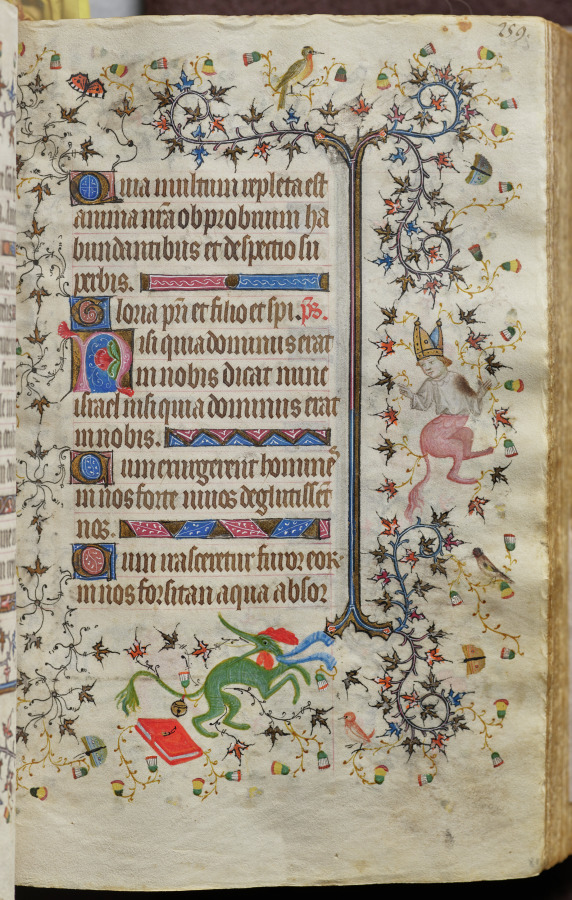 259.
Quia multum repleta est
anima nr̃a obprobrium ha
bundantibus et despectio su
perbis.
Gloria pr̃i et filio et spi. p̃s.
Nisi quia dominus erat
in nobis dicat nunc
israel nisi quia dominus erat
in nobis.
Cum exurgerent homine᷒
in nos forte vivos deglutissẽt
nos.
Cum irasceretur furor eor
in nos forsitan aqua absor